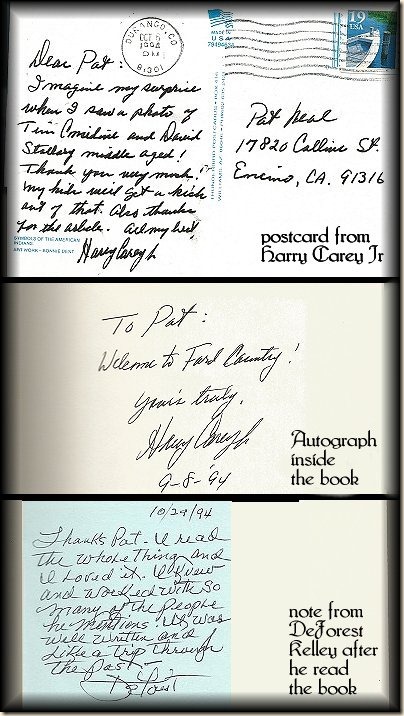 DURANGO, CO
OCT 5
1994
PM
81301
MADE IN
U S A
19
USA
Dear Pat:
I imagine my surprise
when I saw a photo of
Tim Considine and David
Stollery middle aged!
Thank you very much.
My kids will get a kick
out of that. Also thanks
for the article. All my best
Harry Carey Jr
SYMBOLS OF THE AMERICAN
INDIANS
ART WORK - BONNIE DENT
Pat Neal
17820 Collins St.
Encino, CA. 91316
postcard from
Harry Carey Jr
To Pat:
Welcome to Ford Country!
Yours truly,
Harry Carey Jr
9-8-'94
Autograph
inside
the book
10/29/94
Thanks Pat. I read
the whole thing and
I loved it. I knew
and worked with so
many of the people
he mentions. It was
well written and
like a trip through
the past -
De Forest
note from
DeForest
Kelley after
he read
the book